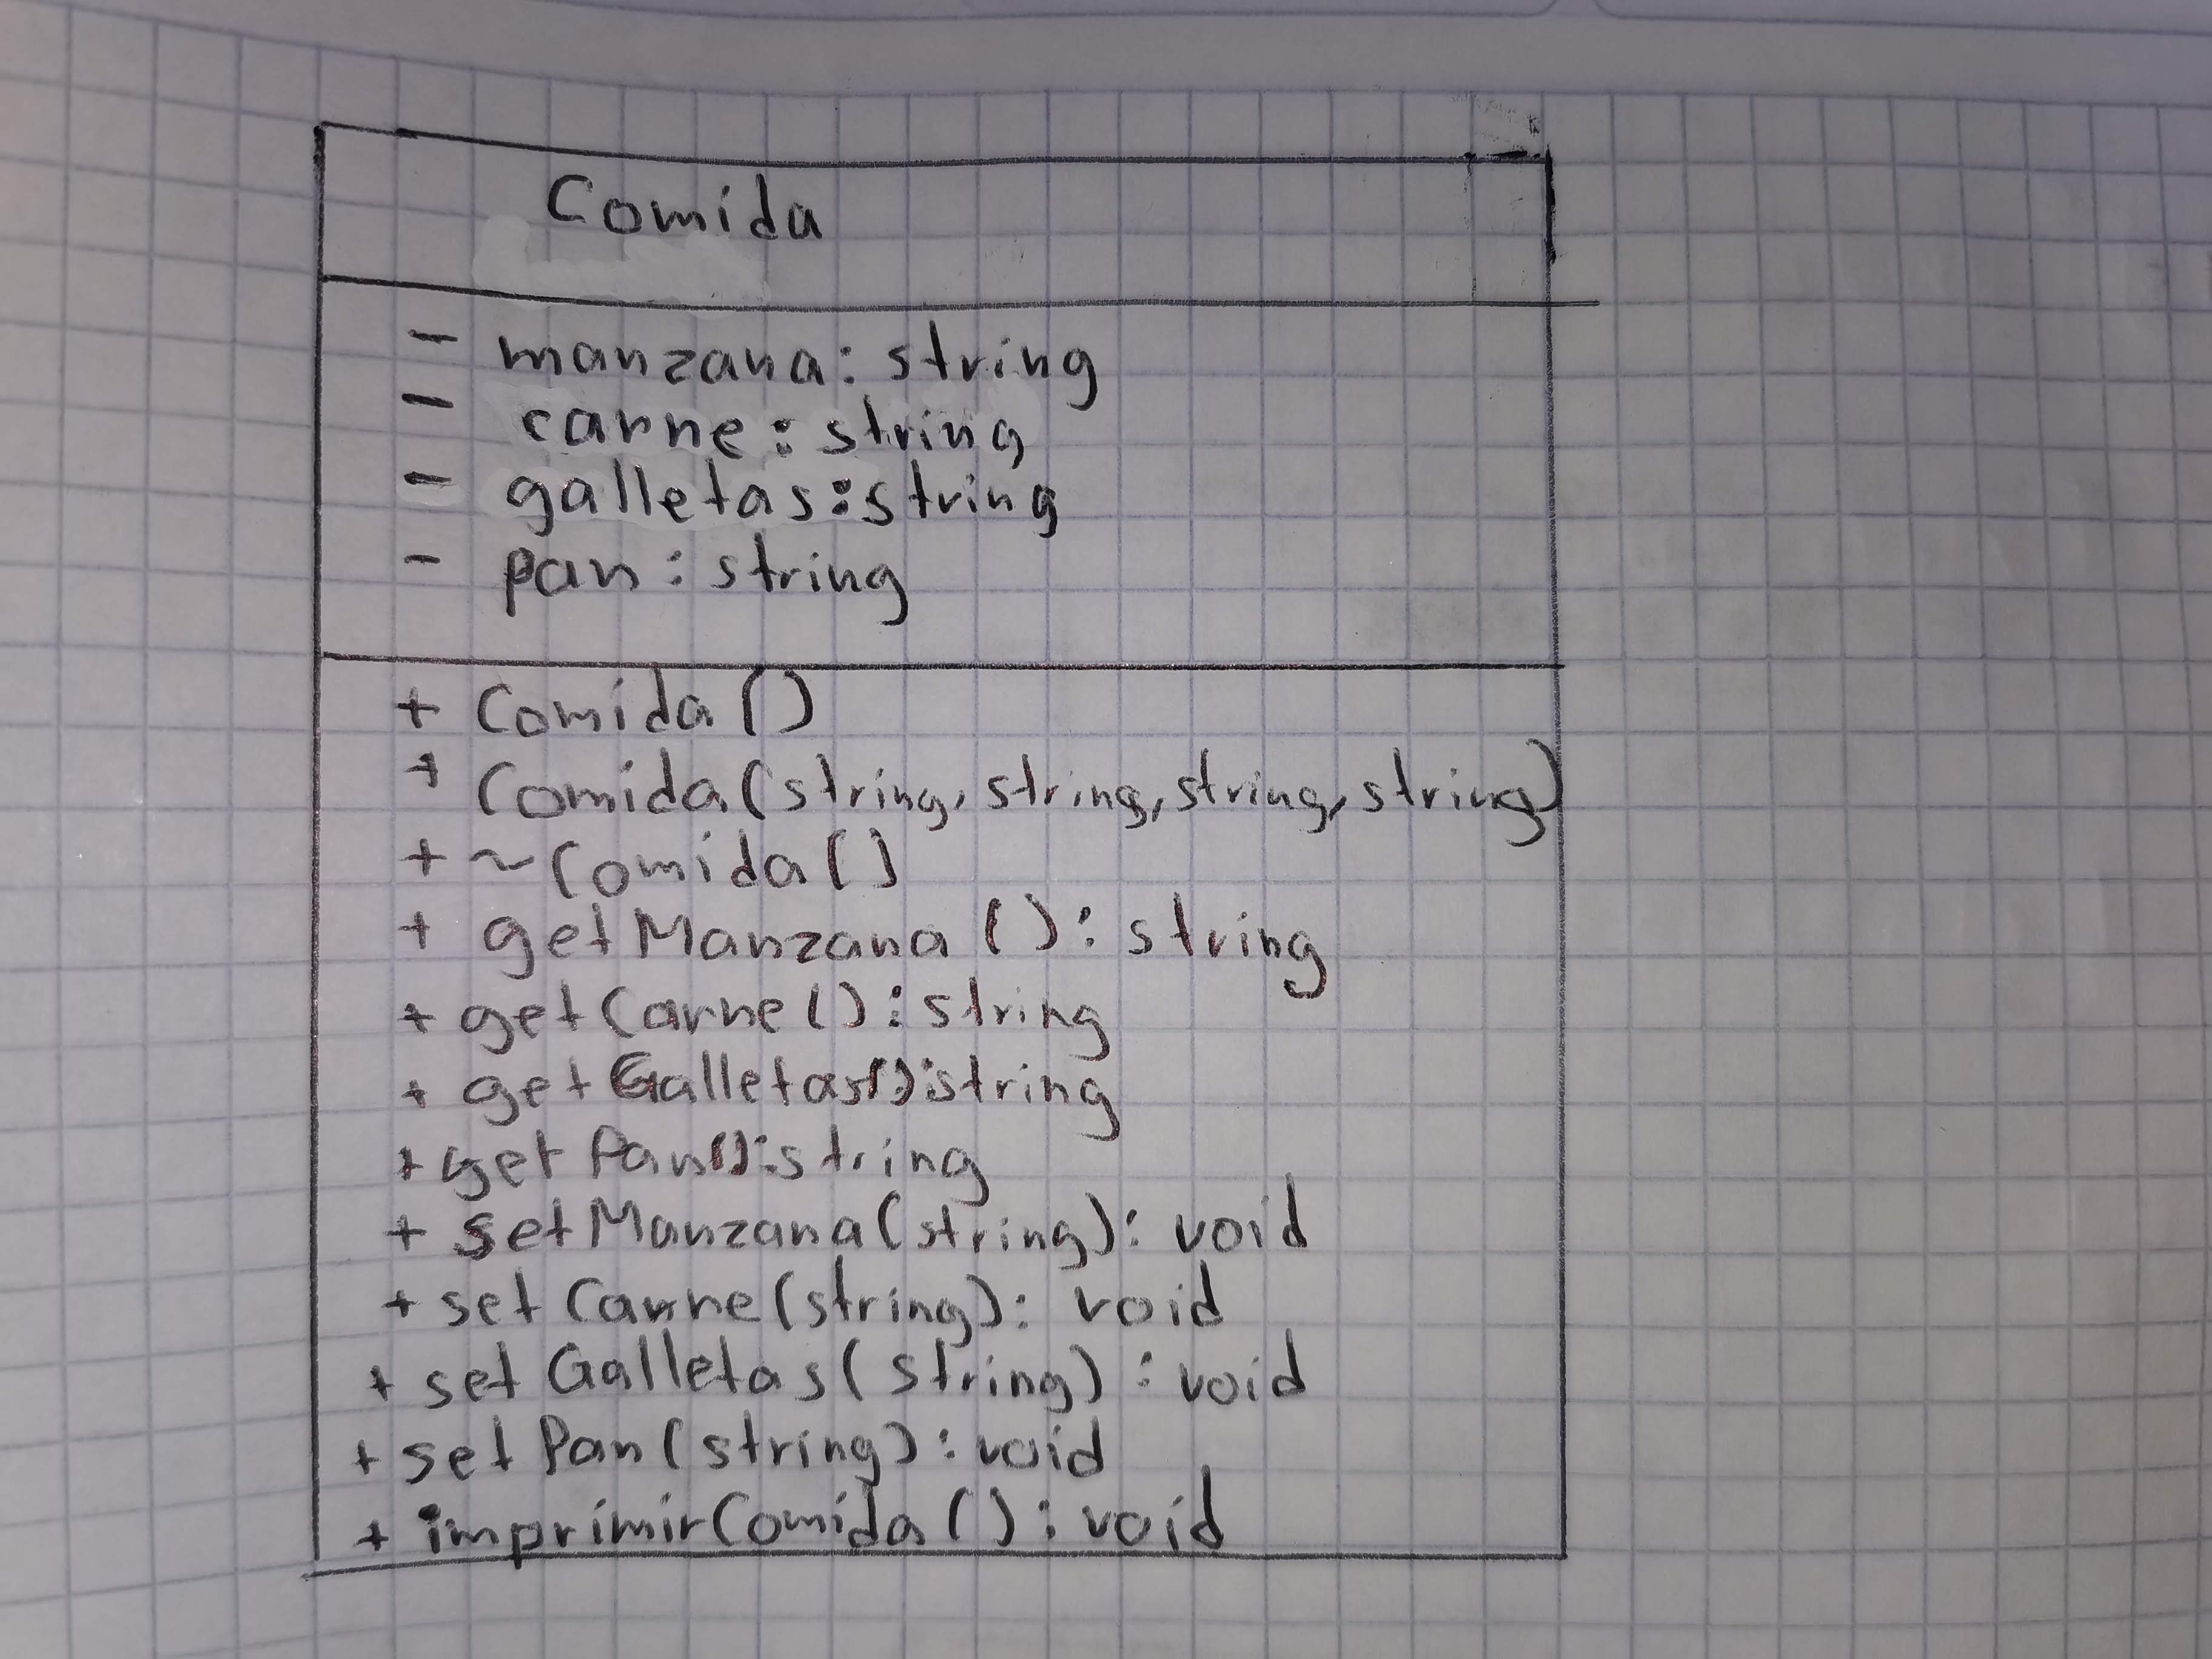 Comida
- manzana: string
- carne: string
- galletas: string
- pan: string
+ Comida()
+ Comida(string, string, string, string)
+ ~Comida()
+ getManzana(): string
+ getCarne(): string
+ getGalletas(): string
+ getPan(): string
+ setManzana(string): void
+ setCarne(string): void
+ setGalletas(string): void
+ setPan(string): void
+ imprimirComida(): void